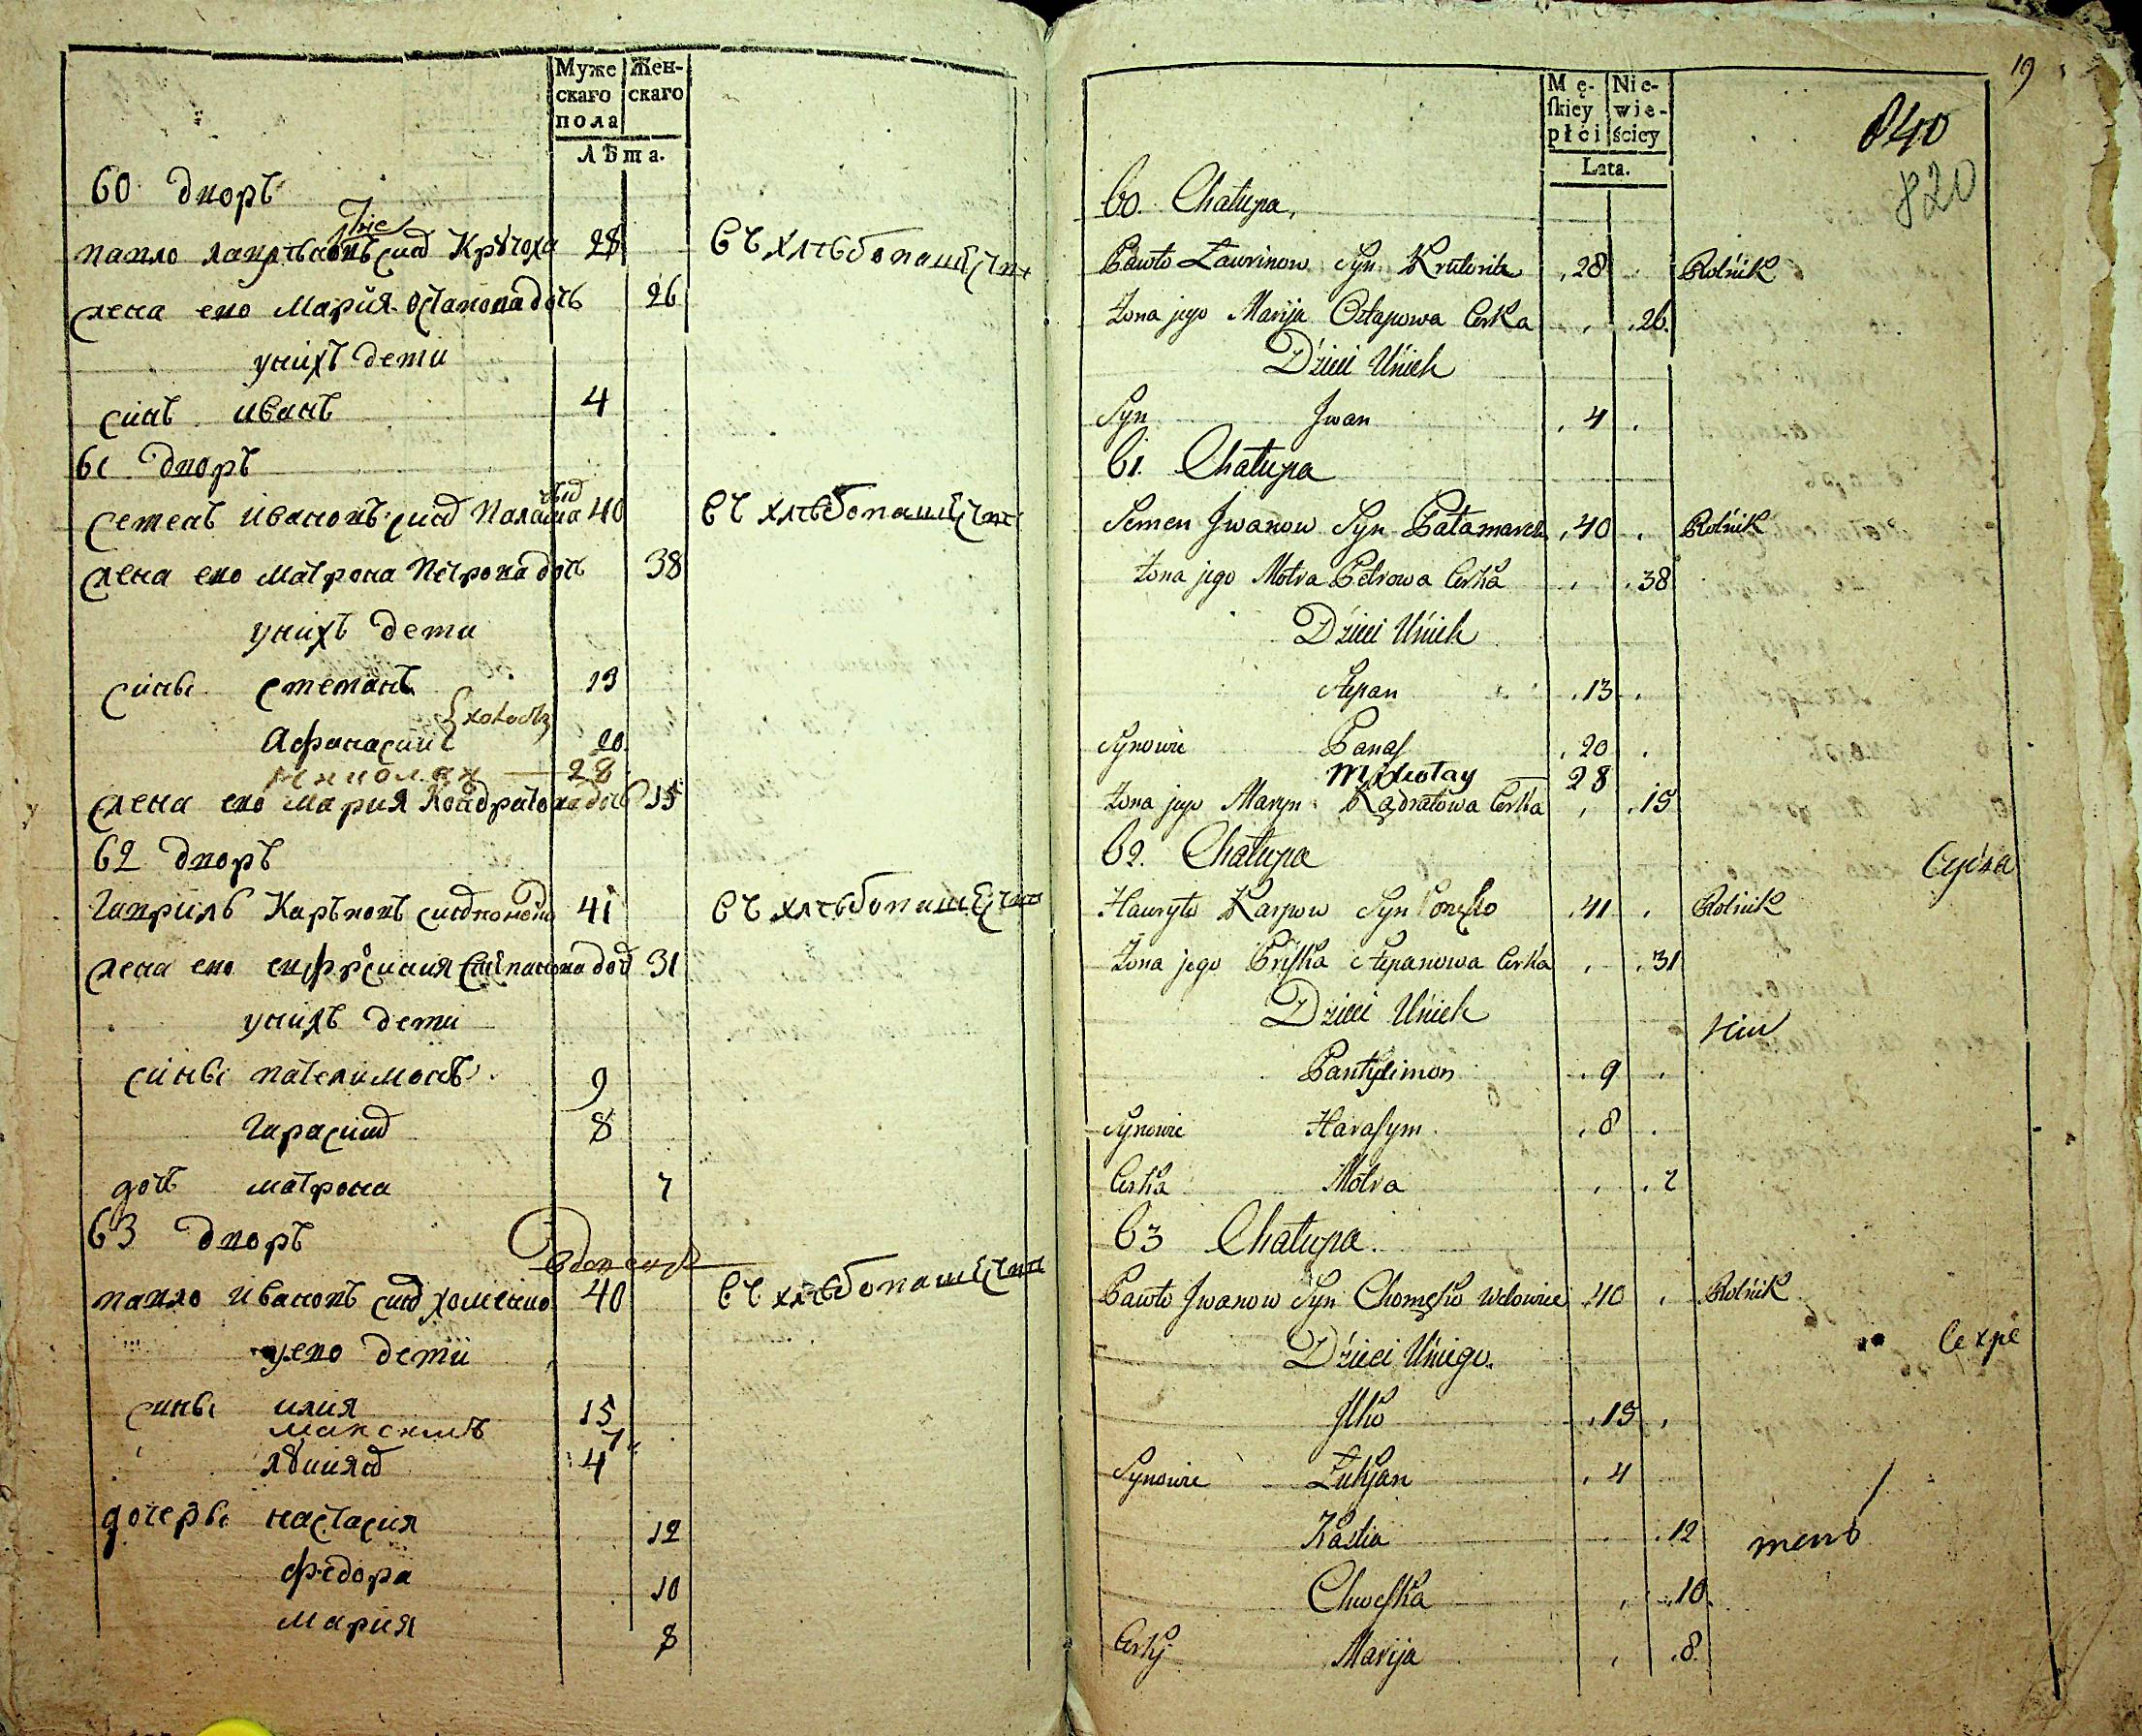 Муже
скаго
пола
Жен-
скаго
Лѣта.
60 дворъ
павло синъ 28 въ хлѣбопашестве
жена ево Мария Остапова дочь 26
у нихъ дети
синъ иванъ 4
61 дворъ
семенъ ивановъ синъ 40 въ хлѣбопашестве
жена ево матрона петрова дочь 38
у нихъ дети
сины степанъ 13
холостъ
Афанасий 20
николай 28
жена ево мария кондратова дочь 15
62 дворъ
гаврилъ Карповъ синъ 41 въ хлѣбопашестве
жена ево ефросиния степанова дочь 31
у нихъ дети
сины пателимонъ 9
гарасим 8
дочь матрона 7
63 дворъ
вдовецъ
павло ивановъ синъ хоменко 40 въ хлѣбопашестве
у ево дети
сины илия 15
максимъ 7
4
дочеры настасия 12
федора 10
мария 8
19
Mę-
ſkiey
płci
Nie-
wie-
ściey
Lata.
840
820
60. Chałupa,
Pawło Ławrinow Syn 28 Rolńik
Żona jego Marija Ostapowa Corka 26.
Dzieci Unich
Syn Jwan 4
61. Chałupa
Semen Jwanow Syn 40 Rolńik
Żona jego Motra Petrowa Corka 38
Dzieci Unich
Stepan 13
Synowie Panaſ 20
Mikołay 28
Żona jego Maryn Kądratowa Corka 15
62. Chałupa
Hawryło Karpow Syn 41 Rolnik
Żona jego Priſka Stepanowa Corka 31
Dzieci Unich
Pantylimon 9
Synowie Haraſym 8
Corka Motra 7
63 Chałupa
Pawło Jwanow Syn Chomęko Wdowiec 40 Rolńik
Dzieci Uniego.
Jlko 15
Synowie Łukjan 4
Nastia 12
Chweſka 10
Corky Marija 8